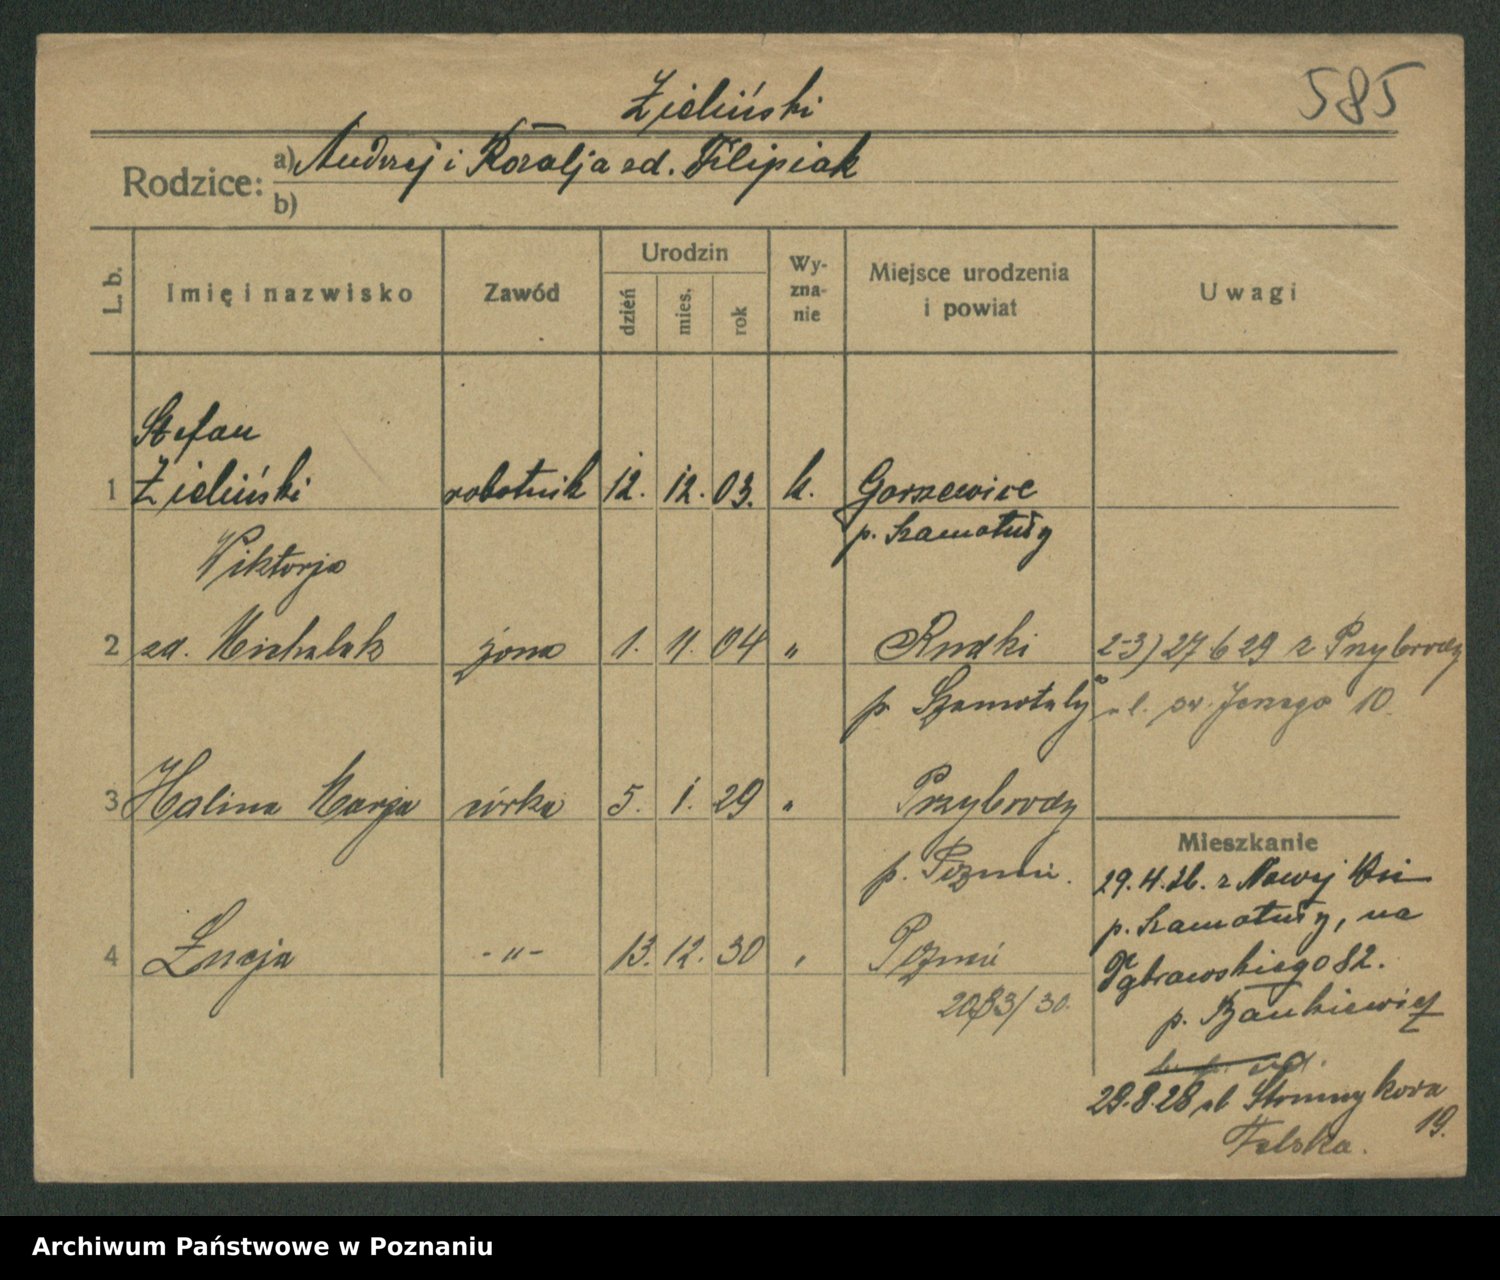 Zieliński
585
Rodzice:
a) Andrzej i Rozalja zd. Filipiak
b)
L. b.
Imię i nazwisko
Zawód
Urodzin
dzień
mies.
rok
Wy-
zna-
nie
Miejsce urodzenia
i powiat
Uwagi
Stefan
1 Zieliński robotnik 12. 12. 03. k. Gorszewice
p. Szamotuły
Wiktorja
2 zd. Michalak żona 1. 11. 04 " Rudki
p. Szamotuły
2-3) 27 6 29 z Przybrody
ul. św. Jerzego 10
3 Halina Marja córka 5. 1. 29 " Przybrody
p. Poznań.
4 Łucja -"- 13. 12. 30 " Poznań
2083/30.
Mieszkanie
29.4.26. z Nowej Wsi
p. Szamotuły, na
Dąbrowskiego 82.
p. Bankiewicz
29.8.28 ul
19.